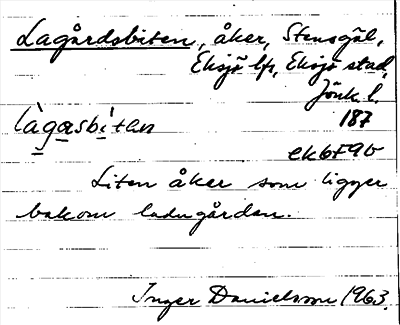 Lagårdsbiten, åker, Stensgöl,
Eksjö lfs, Eksjö stad,
Jönk. l.
lagasbitan 187
ek6f9b
Liten åker som ligger
bakom ladugården.
Inger Danielsson 1963.